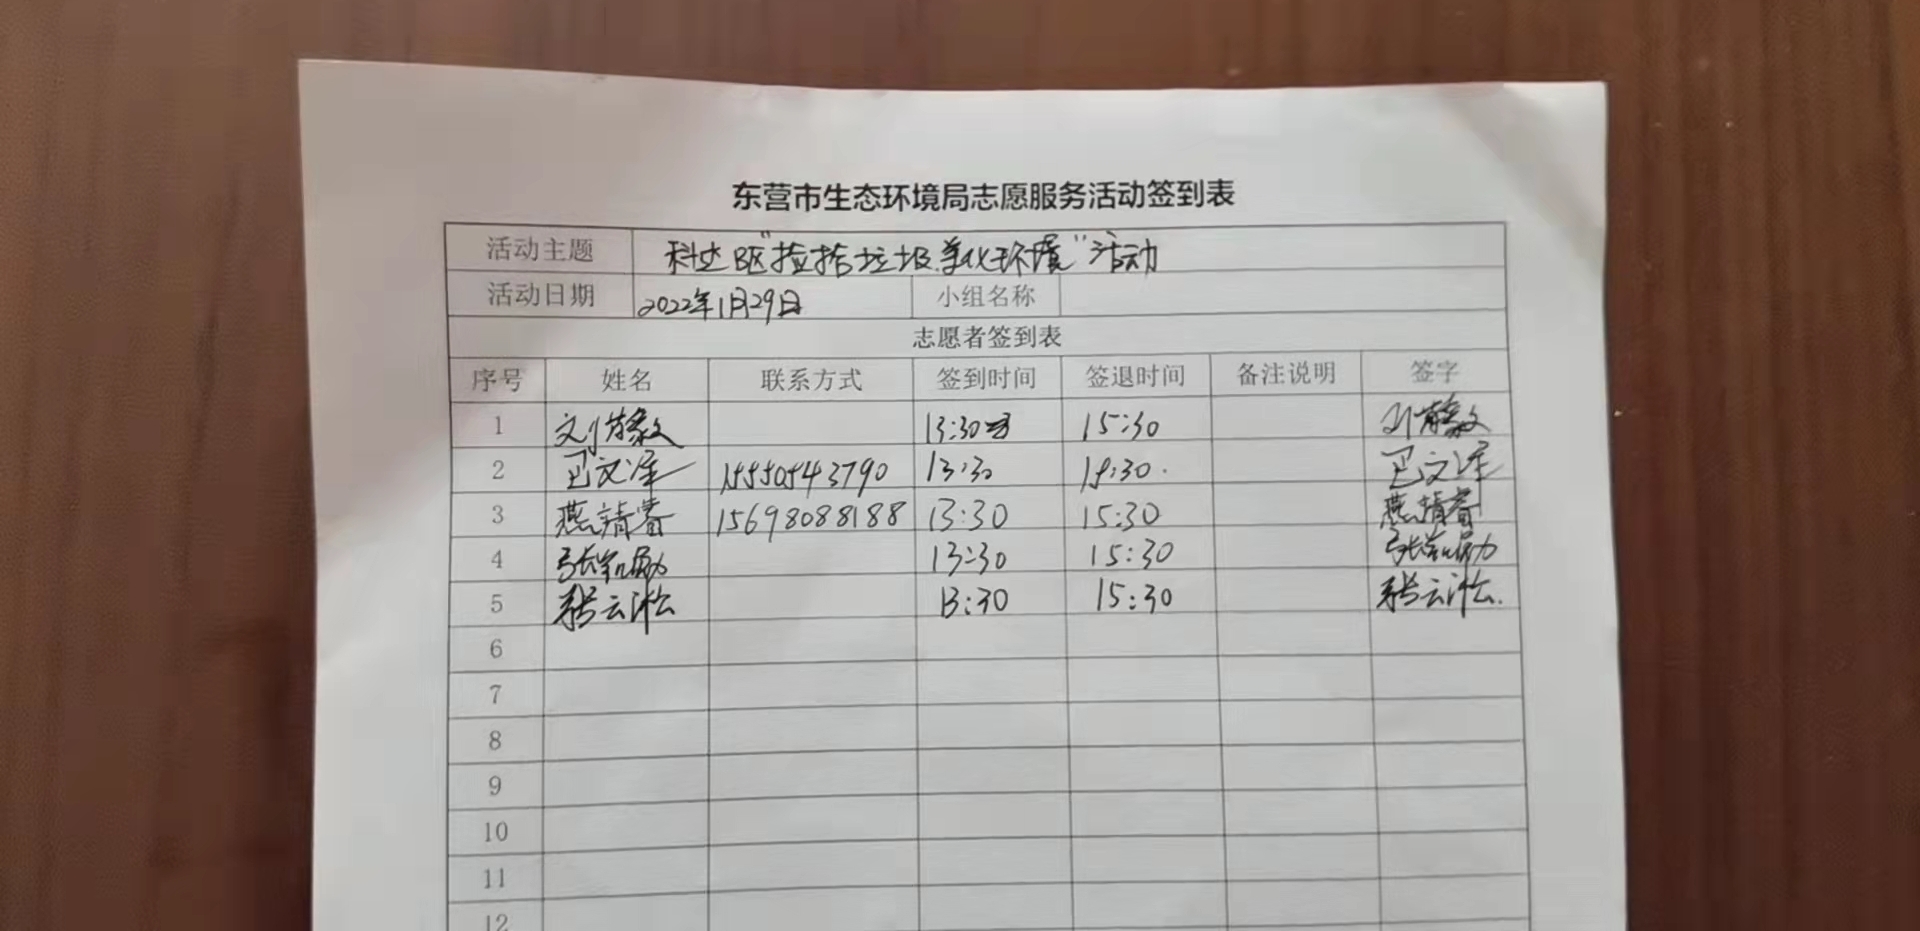 东营市生态环境局志愿服务活动签到表
活动主题 科达B区"捡拾垃圾,美化环境"活动
活动日期 2022年1月29日 小组名称
志愿者签到表
序号 姓名 联系方式 签到时间 签退时间 备注说明 签字
1 13:30 15:30
2 15550543790 13:30 15:30.
3 燕靖睿 15698088188 13:30 15:30 燕靖睿
4 13:30 15:30
5 张云淞 13:30 15:30 张云淞.
6
7
8
9
10
11
12